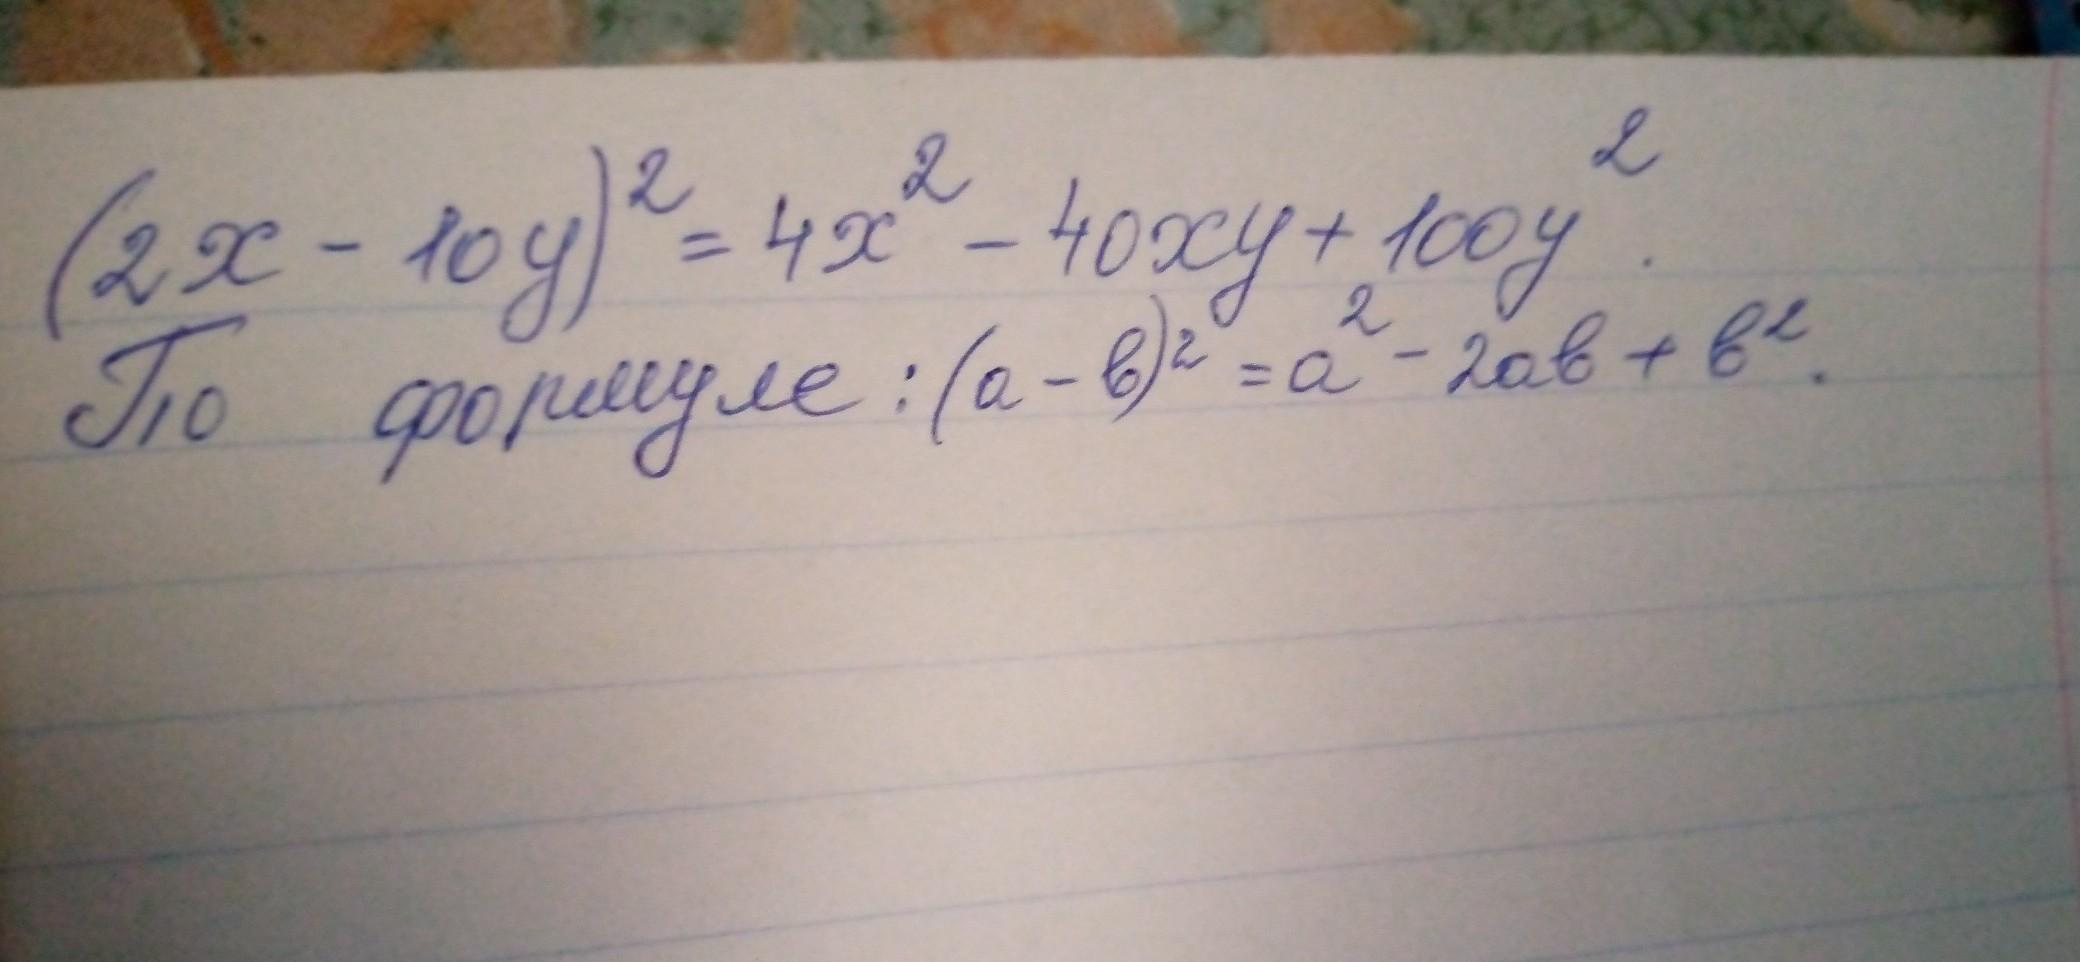 (2x - 10y)² = 4x² - 40xy + 100y².
По формуле: (a - в)² = a² - 2aв + в².